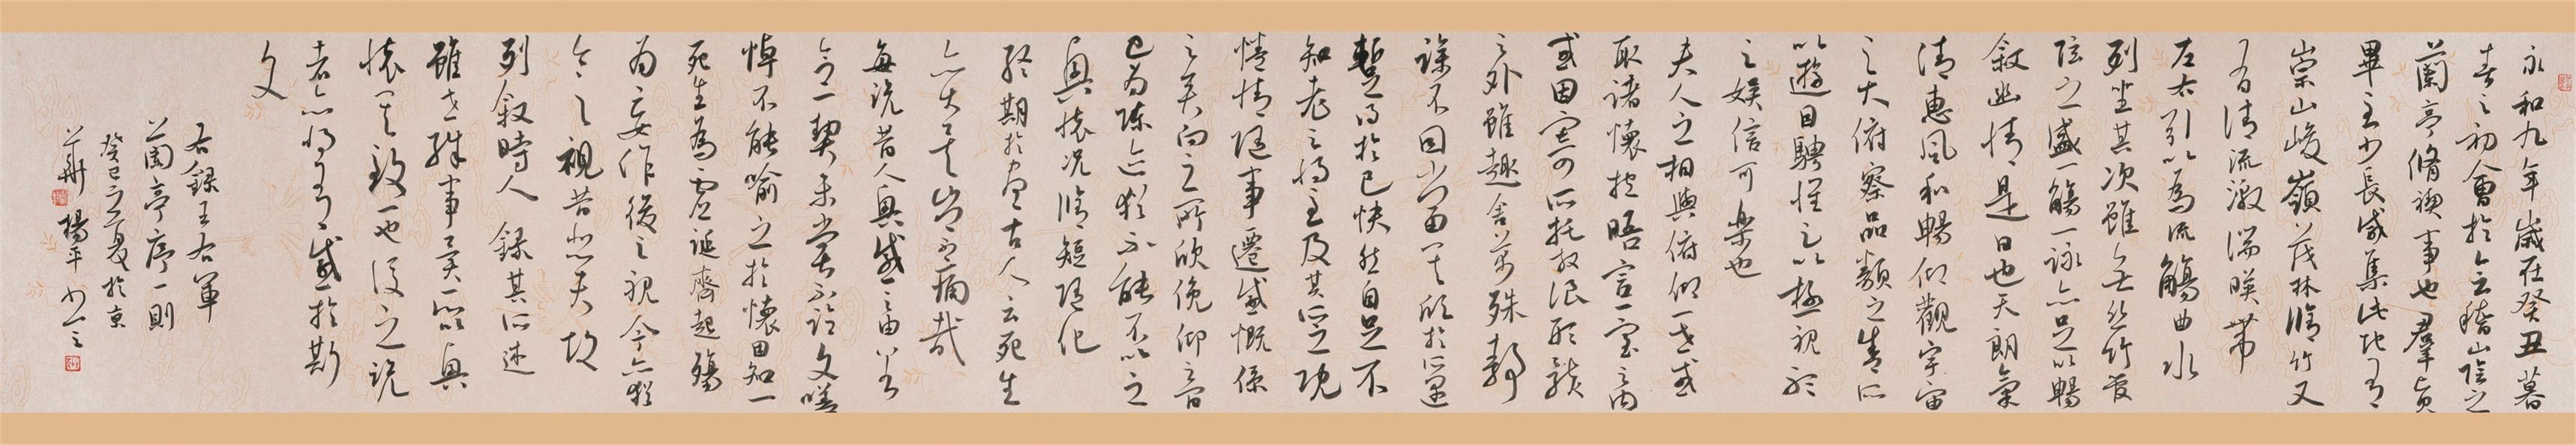 永和九年歲在癸丑暮
春之初會於會稽山陰之
蘭亭脩禊事也羣賢
畢至少長咸集此地有
崇山峻嶺茂林脩竹又
有清流激湍暎帶
左右引以為流觴曲水
列坐其次雖無絲竹管
弦之盛一觴一詠亦足以暢
敘幽情是日也天朗氣
清惠風和暢仰觀宇宙
之大俯察品類之盛所
以遊目騁懷足以極視聽
之娛信可樂也
夫人之相與俯仰一世或
取諸懷抱晤言一室之內
或因寄所托放浪形骸
之外雖趣舍萬殊靜
躁不同當其欣於所遇
暫得於己快然自足不
知老之將至及其所之既
惓情隨事遷感慨係
之矣向之所欣俛仰之間
已為陳迹猶不能不以之
興懷況脩短隨化
終期於盡古人云死生
亦大矣豈不痛哉
每攬昔人興感之由若
合一契未嘗不臨文嗟
悼不能喻之於懷固知一
死生為虛誕齊彭殤
為妄作後之視今亦猶
今之視昔悲夫故
列敘時人錄其所述
雖世殊事異所以興
懷其致一也後之攬
者亦將有感於斯
文
右錄王右軍
蘭亭序一則
癸巳之夏於京
華楊平書之